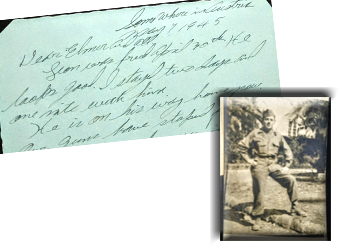 Somewhere in Austria
May 7 1945
Dear Elmer & Dolly
Leon was freed April 30th He
looks good. I stayed two days and
one nite with him.
He is on his way home now
Our Guns have stoped